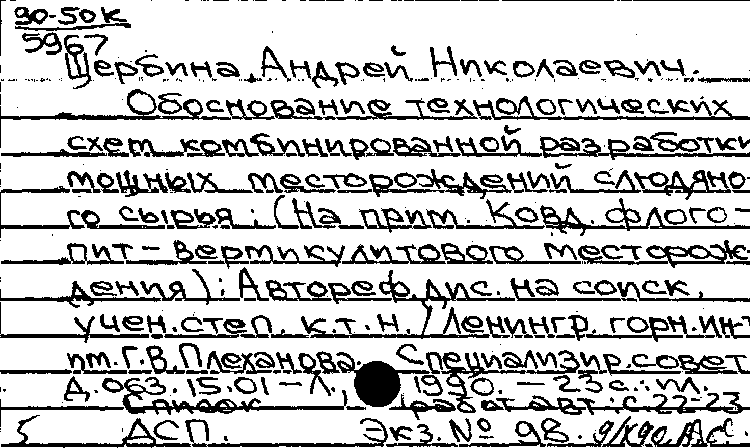 90-50к
5967
Щербина, Андрей Николаевич.
Обоснование технологических
схем комбинированной разработки
мощных месторождений слюдяно-
го сырья : (На прим. Ковд. флого-
пит-вермикулитового месторож-
дения) : Автореф. дис. на соиск.
учен. степ. к.т.н. / Ленингр. горн. ин-т
им. Г.В. Плеханова. Специализир. совет
Д.063.15.01 - Л., 1990. - 23 с. : ил.
Список работ авт.: с. 22-23
5 ДСП. Экз. № 98. 9/X90